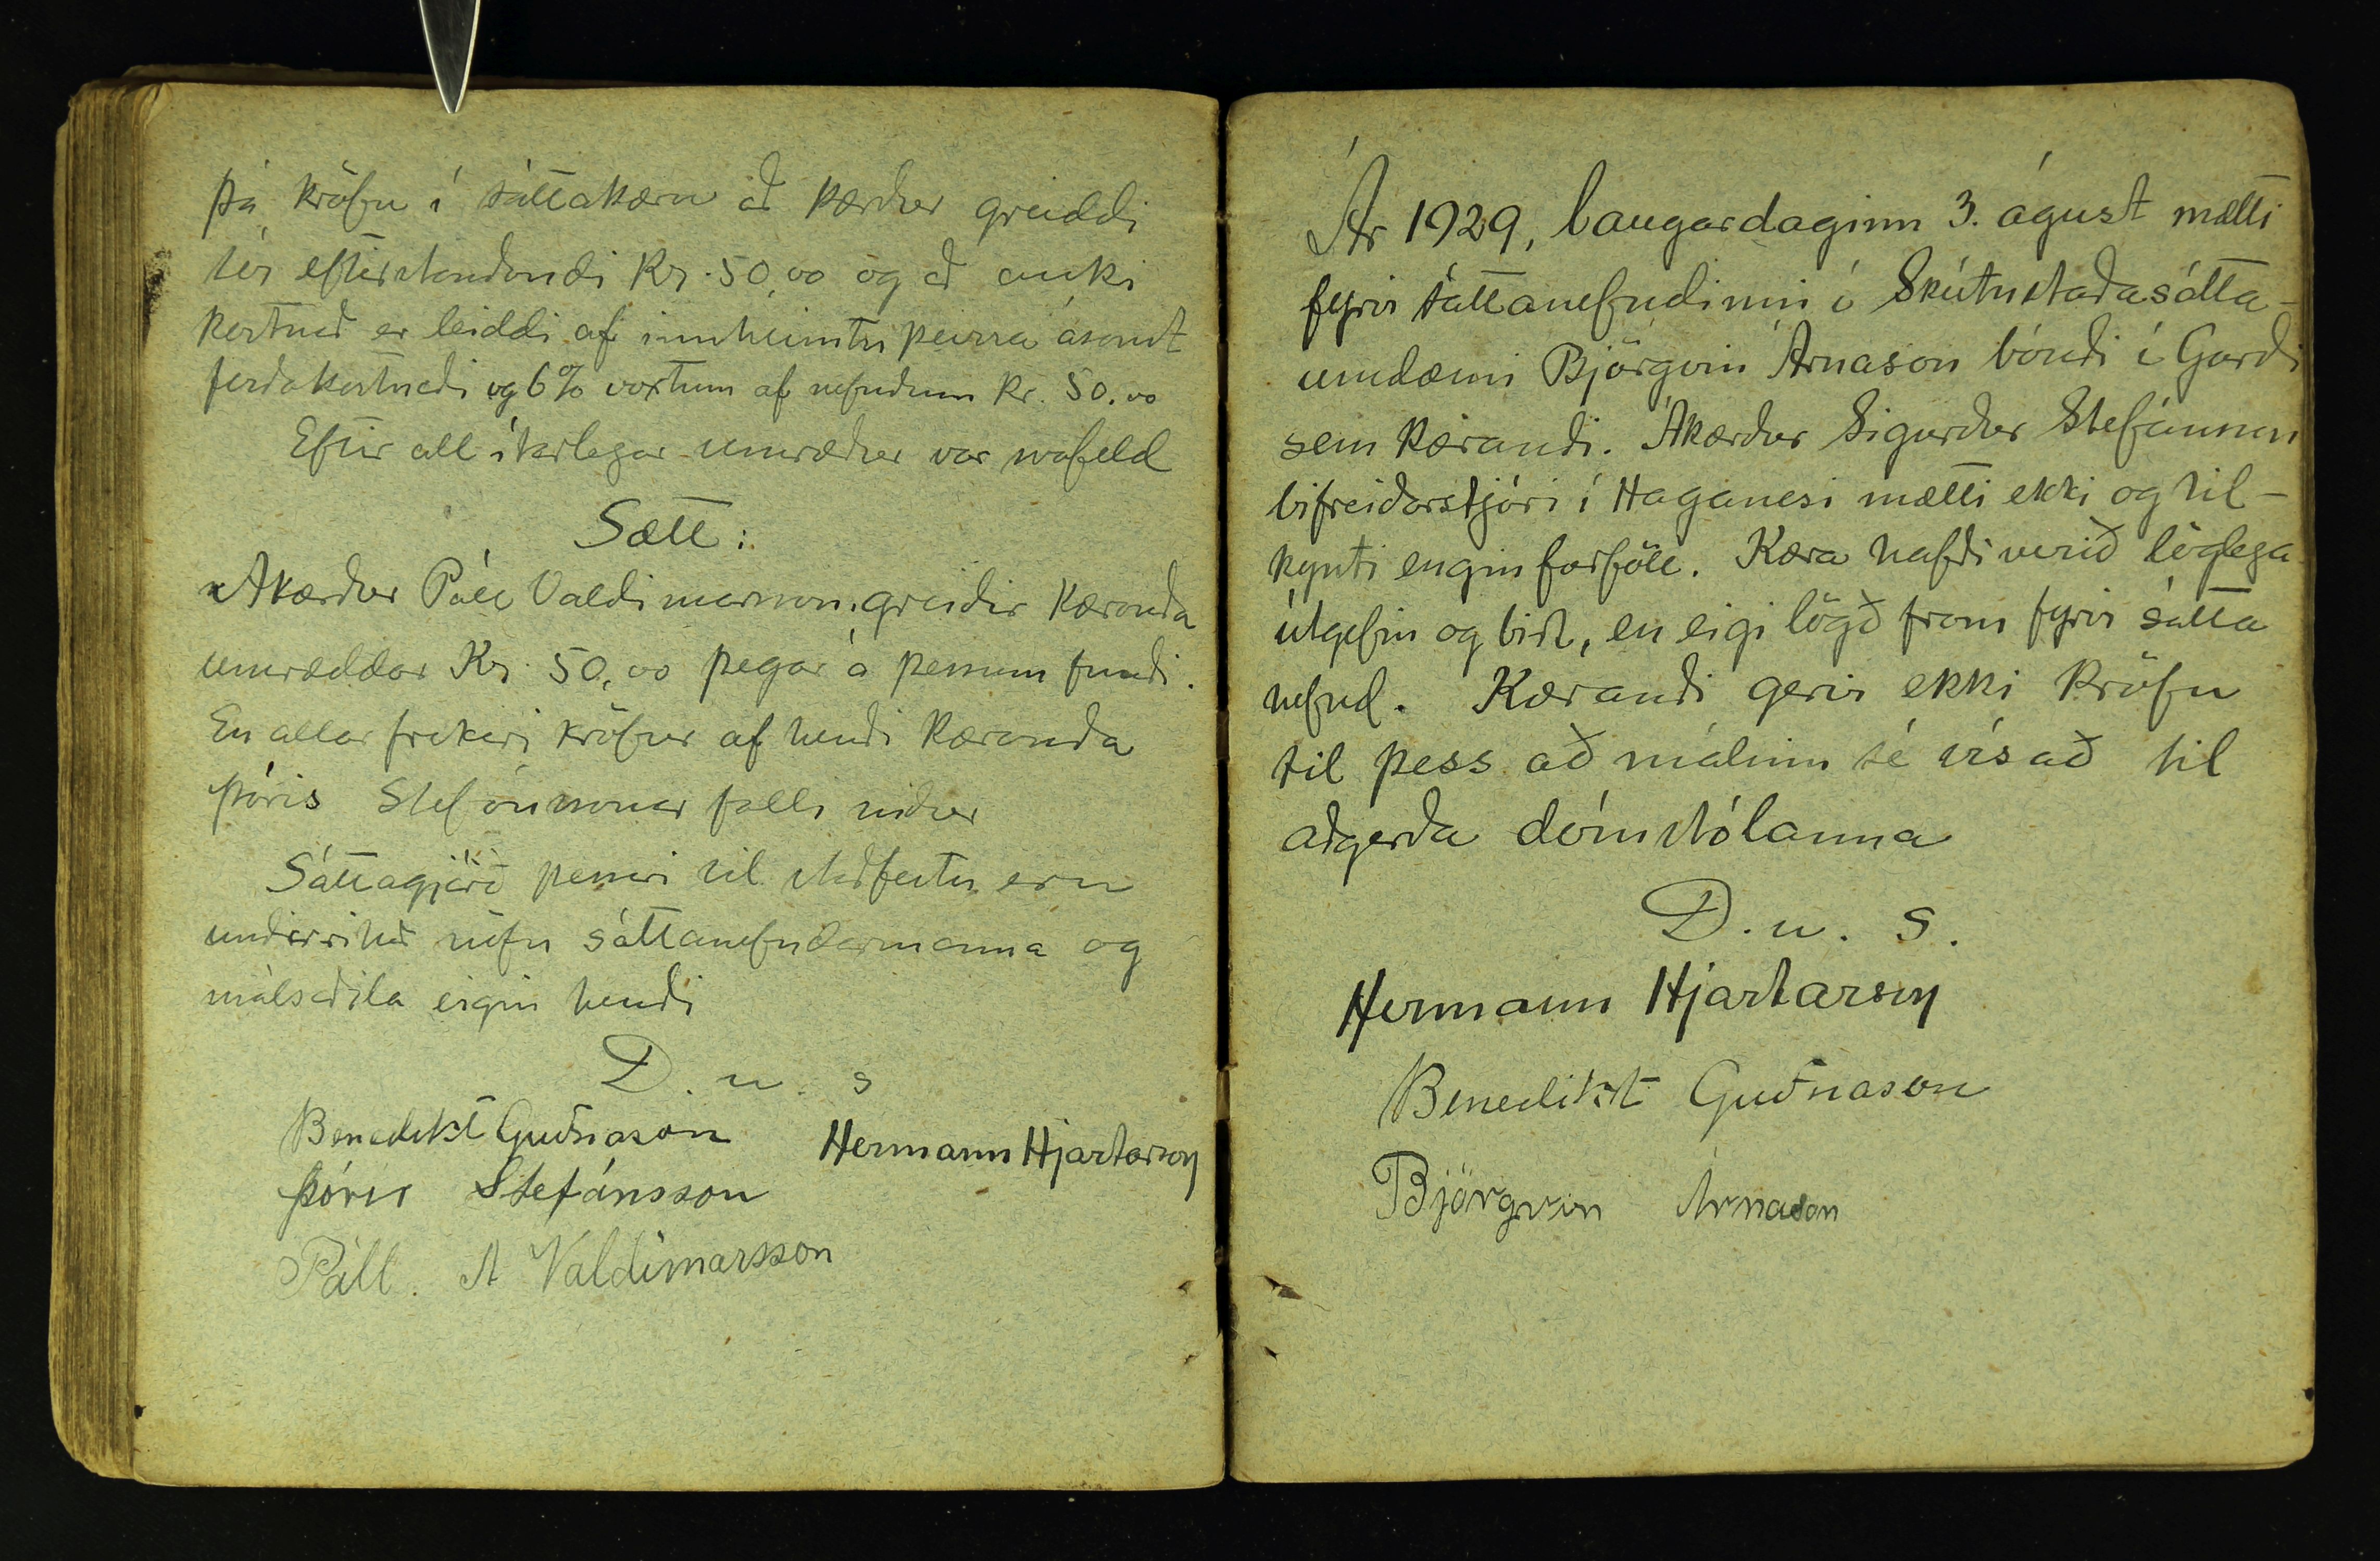 þá kröfu í sáttakæru að kærður greiddi
sér eftirstandandi Kr. 50,00 og að auki
kostnað er leiddi af innheimtu þeirra ásamt
ferðakostnaði og 6% vöxtum af nefndum kr. 50.00
Eftir all ítarlegar umræður var svofeld
Sætt:
Ákærður Páll Valdimarsson greiðir kæranda
umræddar Kr. 50,00 þegar á þessum fundi.
En allar frekari kröfur af hendi kæranda
Þóris Stefánssonar falli niður
Sáttagjörð þessari til staðfestu eru
undirrituð nöfn sáttanefndarmanna og
málsaðila eigin hendi
D. u. s
Benedikt Guðnason Hermann Hjartarson
Þórir Stefánsson
Páll. A Valdimarsson
Ár 1929, laugardaginn 3. ágúst mætti
fyrir sáttanefndinni í Skútustaðasátta-
umdæmi Björgvin Árnason bóndi í Garði
sem kærandi. Ákærður Sigurður Stefánsson
bifreiðarstjóri í Haganesi mætti ekki og til-
kynti engin forföll. Kæra hafði verið löglega
útgefin og birt, en eigi lögð fram fyrir sátta
nefnd. Kærandi gerir ekki kröfu
til þess að málinu sé vísað til
aðgerða dómstólanna
D. u. S.
Hermann Hjartarson
Benedikt Guðnason
Björgvin Árnason